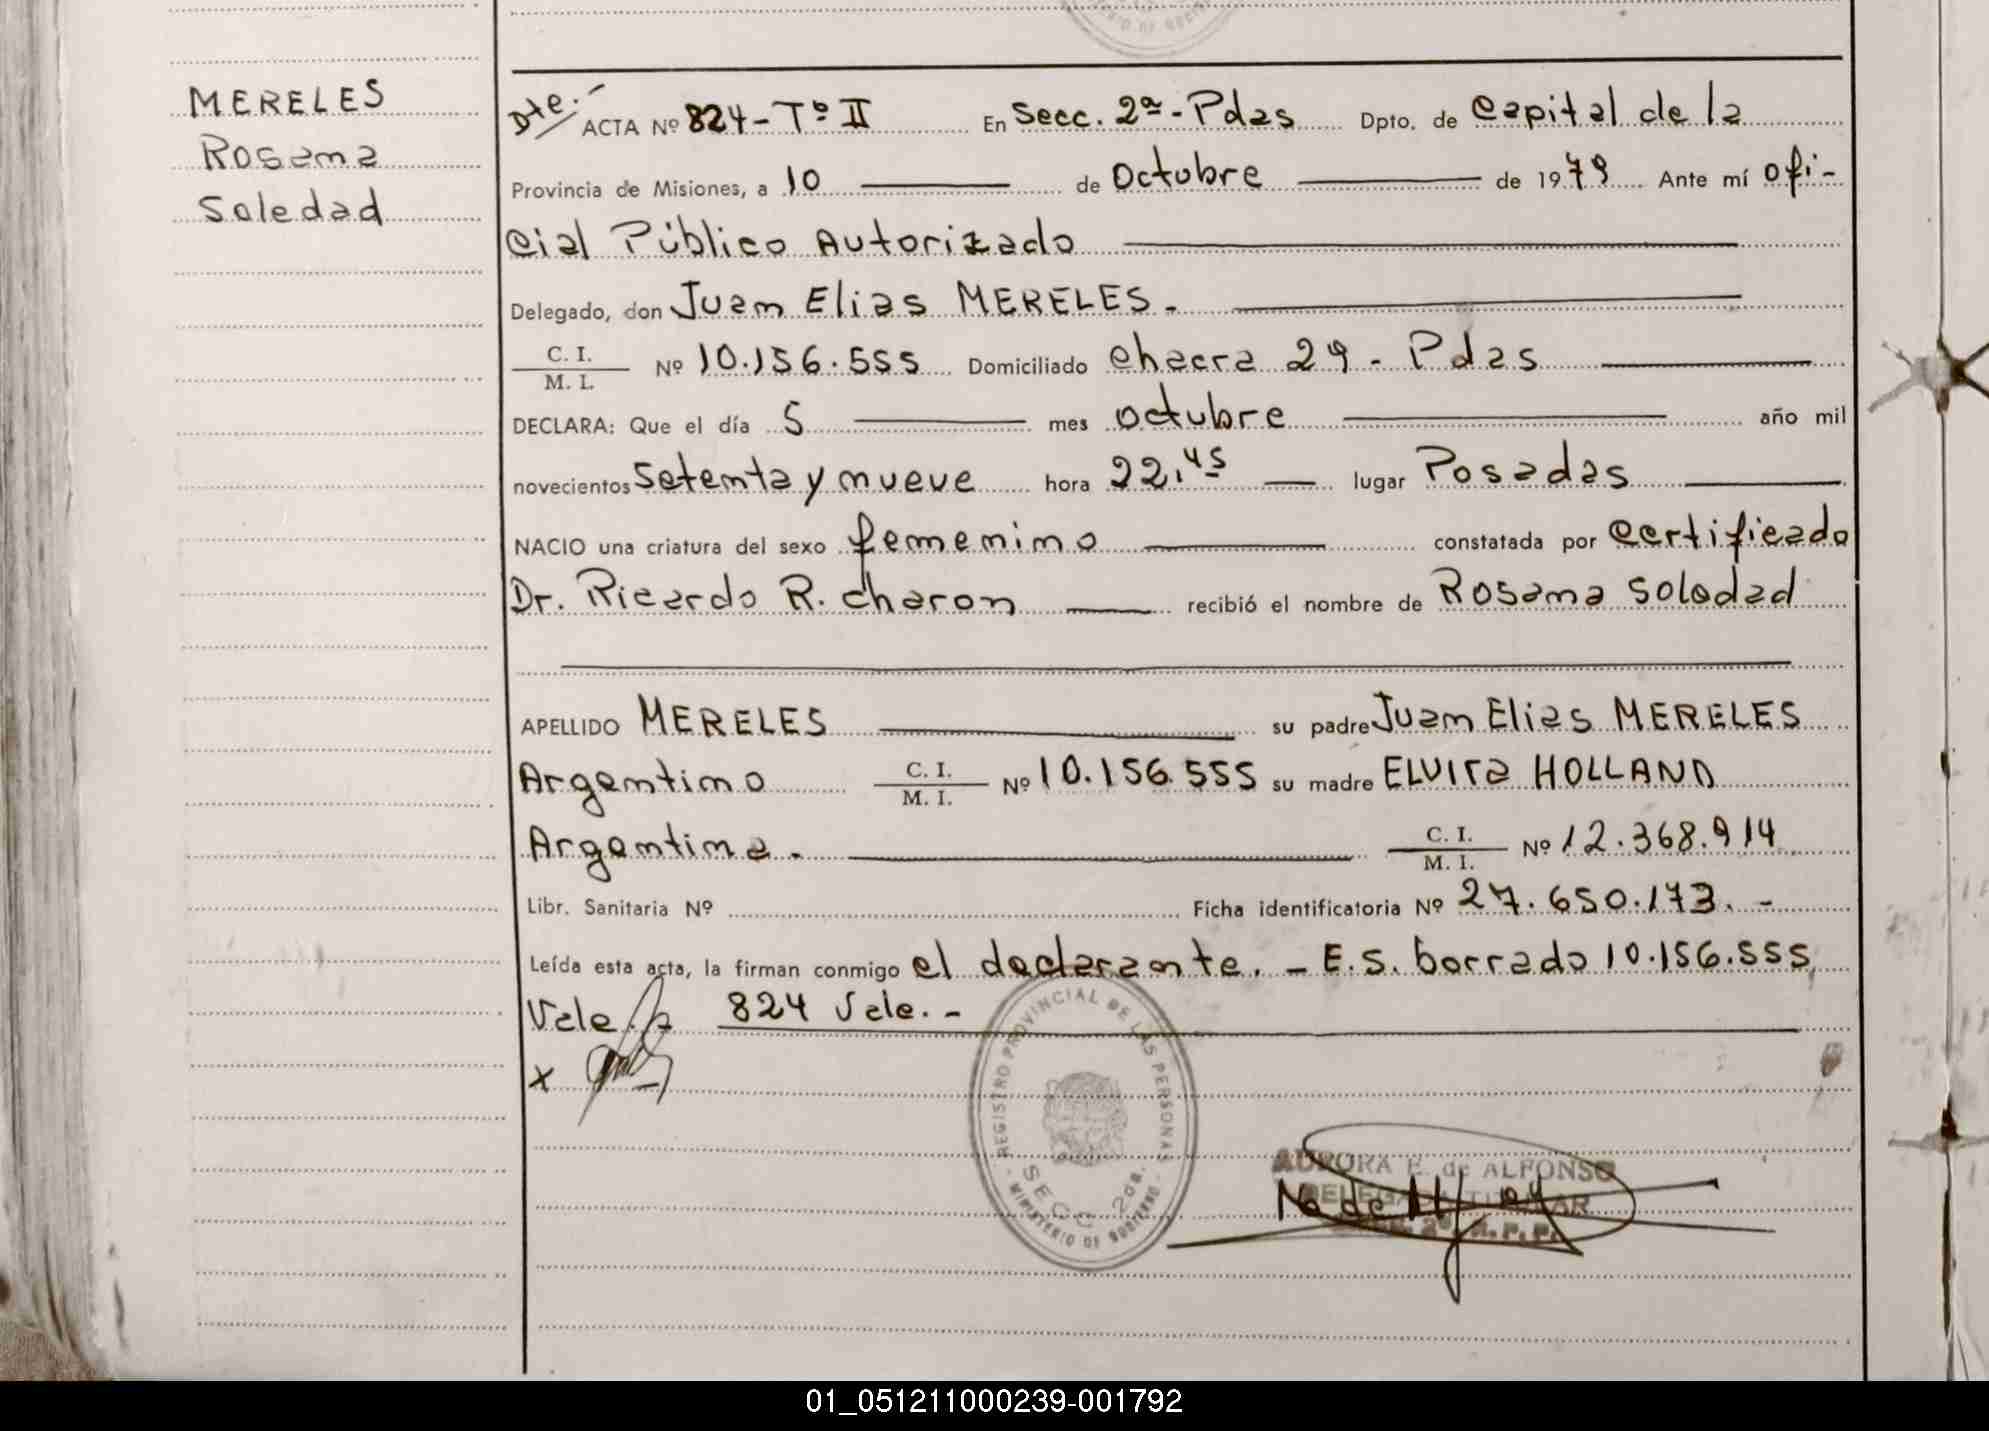 MERELES
Rosana
Soledad
Dte.- ACTA Nº 824-Tº II En Secc. 2ª-Pdas Dpto. de Capital de la
Provincia de Misiones, a 10 de Octubre de 1979 Ante mí ofi-
cial Público Autorizado
Delegado, don Juan Elias MERELES.-
C. I.
M. I. Nº 10.156.555 Domiciliado chacra 29 - Pdas
DECLARA: Que el día 5 mes octubre año mil
novecientos Setenta y nueve hora 22,45 lugar Posadas
NACIO una criatura del sexo femenino constatada por certificado
Dr. Ricardo R. charon recibió el nombre de Rosana Soledad
APELLIDO MERELES su padre Juan Elias MERELES
Argentino C. I.
M. I. Nº 10.156.555 su madre ELVIRA HOLLAND
Argentina.- C. I.
M. I. Nº 12.368.914
Libr. Sanitaria Nº Ficha identificatoria Nº 27.650.173.-
Leída esta acta, la firman conmigo el declarante.- E.S. borrado 10.156.555
Vale 824 Vale.-
x
REGISTRO PROVINCIAL DE LAS PERSONAS
SECC 2da.
MINISTERIO DE GOBIERNO
AURORA E. de ALFONSO
DELEGADA TITULAR
01_051211000239-001792